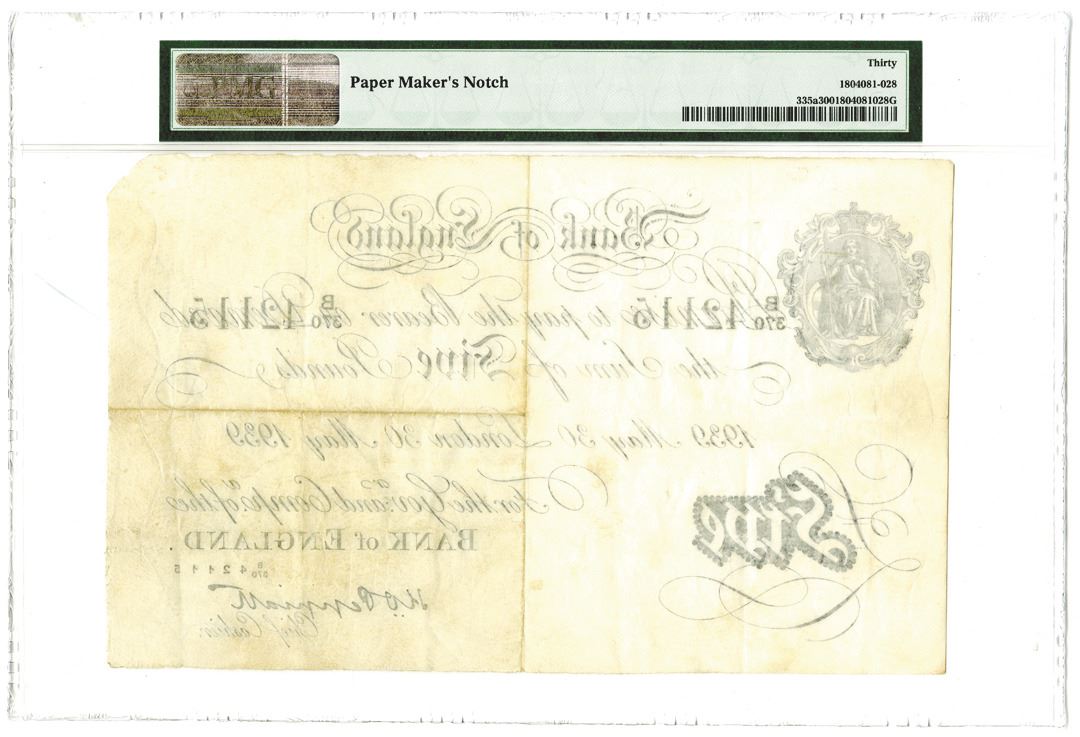 Paper Maker's Notch
Thirty
1804081-028
335a3001804081028G
PMG
Bank of England
B/370 42115 B/370 42115
Promise to pay the Bearer on Demand
the Sum of Five Pounds
1939 May 30 London 30 May 1939
For the Gov.r and Comp.a of the
BANK of ENGLAND.
B/370 42115
K.O. Peppiatt
Chief Cashier.
Five